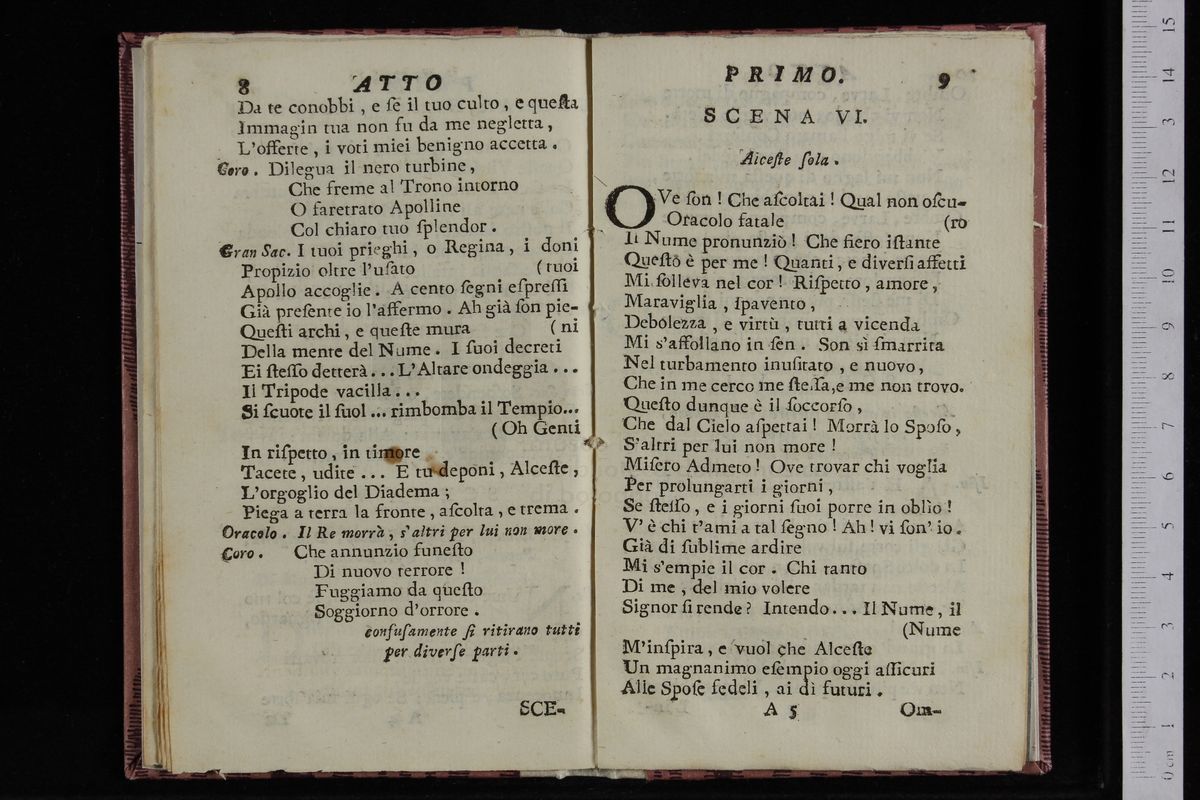 8 ATTO
Da te conobbi, e ſe il tuo culto, e queſta
Immagin tua non fu da me negletta,
L'offerte, i voti miei benigno accetta.
Coro. Dilegua il nero turbine,
Che freme al Trono intorno
O faretrato Apolline
Col chiaro tuo ſplendor.
Gran Sac. I tuoi prieghi, o Regina, i doni
Propizio oltre l'uſato (tuoi
Apollo accoglie. A cento ſegni eſpreſſi
Già preſente io l'affermo. Ah già ſon pie-
Queſti archi, e queſte mura (ni
Della mente del Nume. I ſuoi decreti
Ei ſteſſo detterà... L'Altare ondeggia...
Il Tripode vacilla...
Si ſcuote il ſuol... rimbomba il Tempio...
(Oh Genti
In riſpetto, in timore
Tacete, udite... E tu deponi, Alceſte,
L'orgoglio del Diadema;
Piega a terra la fronte, aſcolta, e trema.
Oracolo. Il Re morrà, s'altri per lui non more.
Coro. Che annunzio funeſto
Di nuovo terrore!
Fuggiamo da queſto
Soggiorno d'orrore.
confuſamente ſi ritirano tutti
per diverſe parti.
SCE-
PRIMO. 9
SCENA VI.
Alceſte ſola.
OVe ſon! Che aſcoltai! Qual non oſcu-
Oracolo fatale (ro
Il Nume pronunziò! Che fiero iſtante
Queſtò è per me! Quanti, e diverſi affetti
Mi ſolleva nel cor! Riſpetto, amore,
Maraviglia, ſpavento,
Debolezza, e virtù, tutti a vicenda
Mi s'affollano in ſen. Son sì ſmarrita
Nel turbamento inuſitato, e nuovo,
Che in me cerco me ſteſſa, e me non trovo.
Queſto dunque è il ſoccorſo,
Che dal Cielo aſpettai! Morrà lo Spoſo,
S'altri per lui non more!
Miſero Admeto! Ove trovar chi voglia
Per prolungarti i giorni,
Se ſteſſo, e i giorni ſuoi porre in oblìo!
V'è chi t'ami a tal ſegno! Ah! vi ſon' io.
Già di ſublime ardire
Mi s'empie il cor. Chi tanto
Di me, del mio volere
Signor ſi rende? Intendo... Il Nume, il
(Nume
M'inſpira, e vuol che Alceſte
Un magnanimo eſempio oggi aſſicuri
Alle Spoſe fedeli, ai dì futuri.
A 5 Om-
0 cm 1 2 3 4 5 6 7 8 9 10 11 12 13 14 15